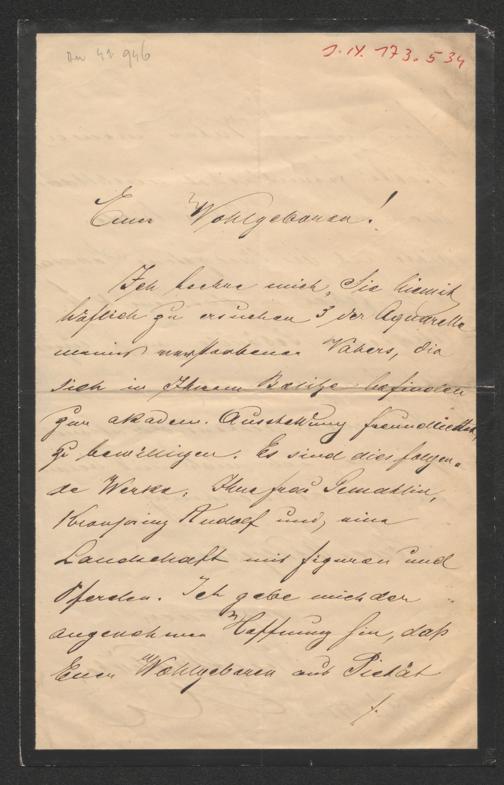 J.N. 173.534
Euer Wohlgeboren!
Ich beehre mich, Sie hiemit
höflich zu ersuchen 3 der Aquarelle
meines verstorbenen Vaters, die
sich in Ihrem Besitze befinden
zur akadem. Ausstellung freundlichst
zu bewilligen. Es sind dies folgen-
de Werke, Ihre frau Gemahlin,
Kronprinz Rudolf und, eine
Landschaft mit figuren und
Pferden. Ich gebe mich der
angenehmen Hoffnung hin, daß
Euer Wohlgeboren aus Pietät